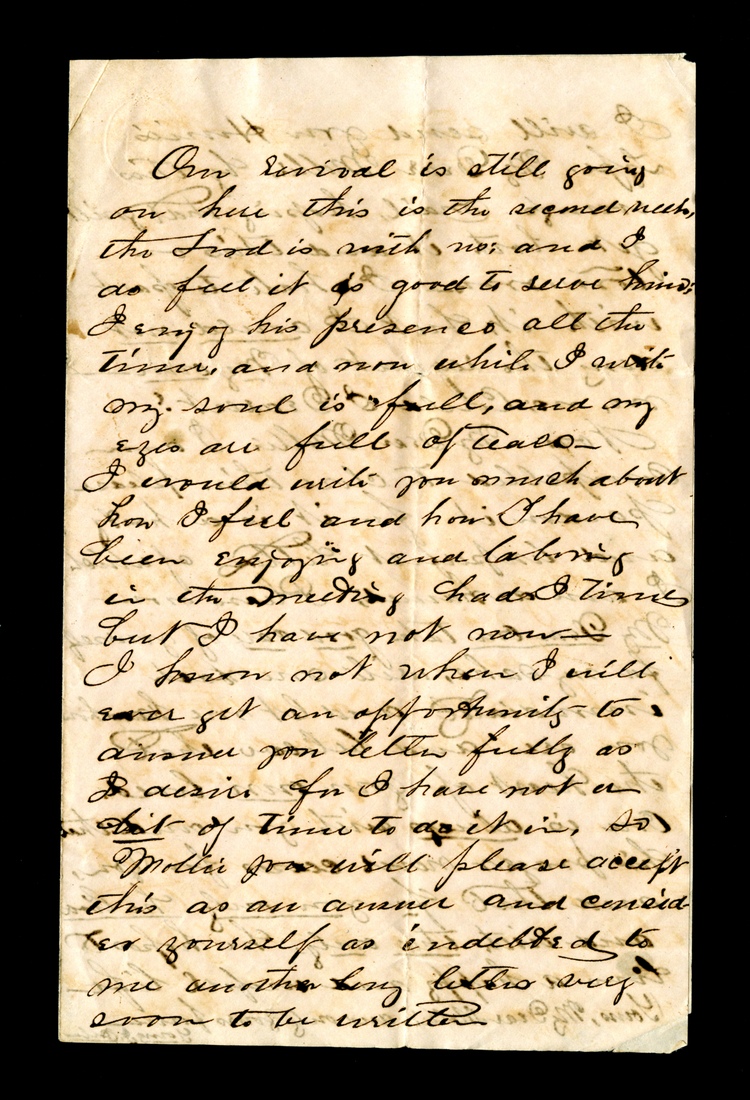 Our revival is still going
on here this is the second week,
the Lord is with us; and I
do feel it is good to serve him;
I enjoy his presence all the
time, and now while I write
my soul is full, and my
eyes are full of tears—
I would write you much about
how I feel and how I have
been enjoying and laboring
in the meeting had I time
but I have not now—
I know not when I will
ever get an opportunity to
answer you letter fully as
I desire for I have not a
bit of time to do it in, so
Mollie you will please accept
this as an answer and consid
er yourself as indebted to
me another long letter very
soon to be written